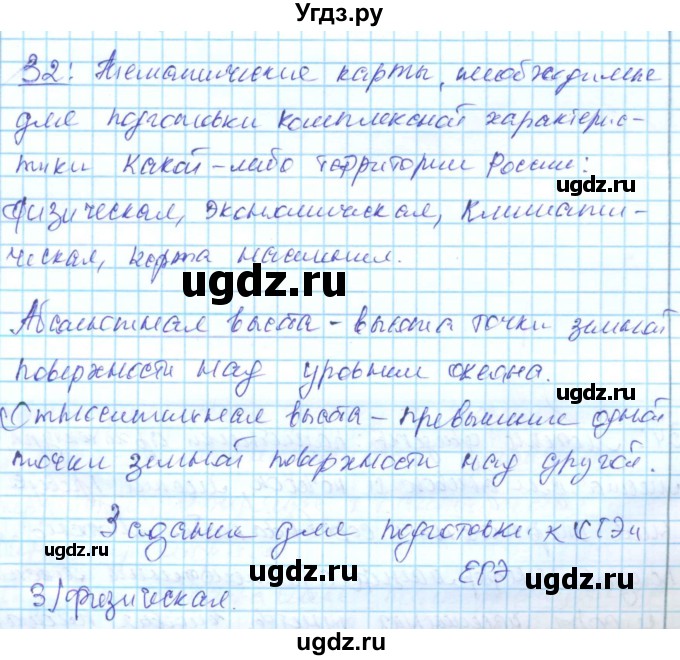 Угдз.ру
32: Тематические карты, необходимые
для подготовки комплексной характерис-
тики какой-либо территории России:
ugdz.ru
физическая, экономическая, климати-
ческая, карта населения.
ugdz.ru
Абсолютная высота - высота точки земной
поверхности над уровнем океана.
ugdz.ru
Относительная высота - превышение одной
точки земной поверхности над другой.
Задания для подготовки к ОГЭ и
ЕГЭ
ugdz.ru
ugdz.ru
ugdz.ru
3) физическая.
ugdz.ru